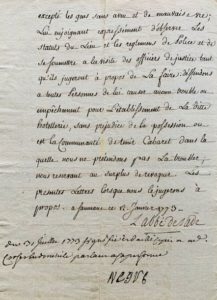 excepté les gens sans aveu et de mauvaise vie;
Lui enjoignant expressement d'observer Les
Statuts du Lieu et les reglemens de Police et de
se soumettre à la visite des officiers de justice tant
qu'ils jugeront à propos de La faire; deffendons
à toutes Personnes de lui causer aucun trouble ou
empêchement pour l'établissement de La ditte
hotellerie, sans prejudice de la possession ou
est la Communauté de tenir Cabaret dans la
quelle nous ne pretendons pas La troubler;
nous reservant au surplus de revoquer Les
presentes Lettres Lorsque nous le jugerons à
propos. à Saumane ce 12 1773.
L'abbé de Sade
du 31 juillet 1773
par